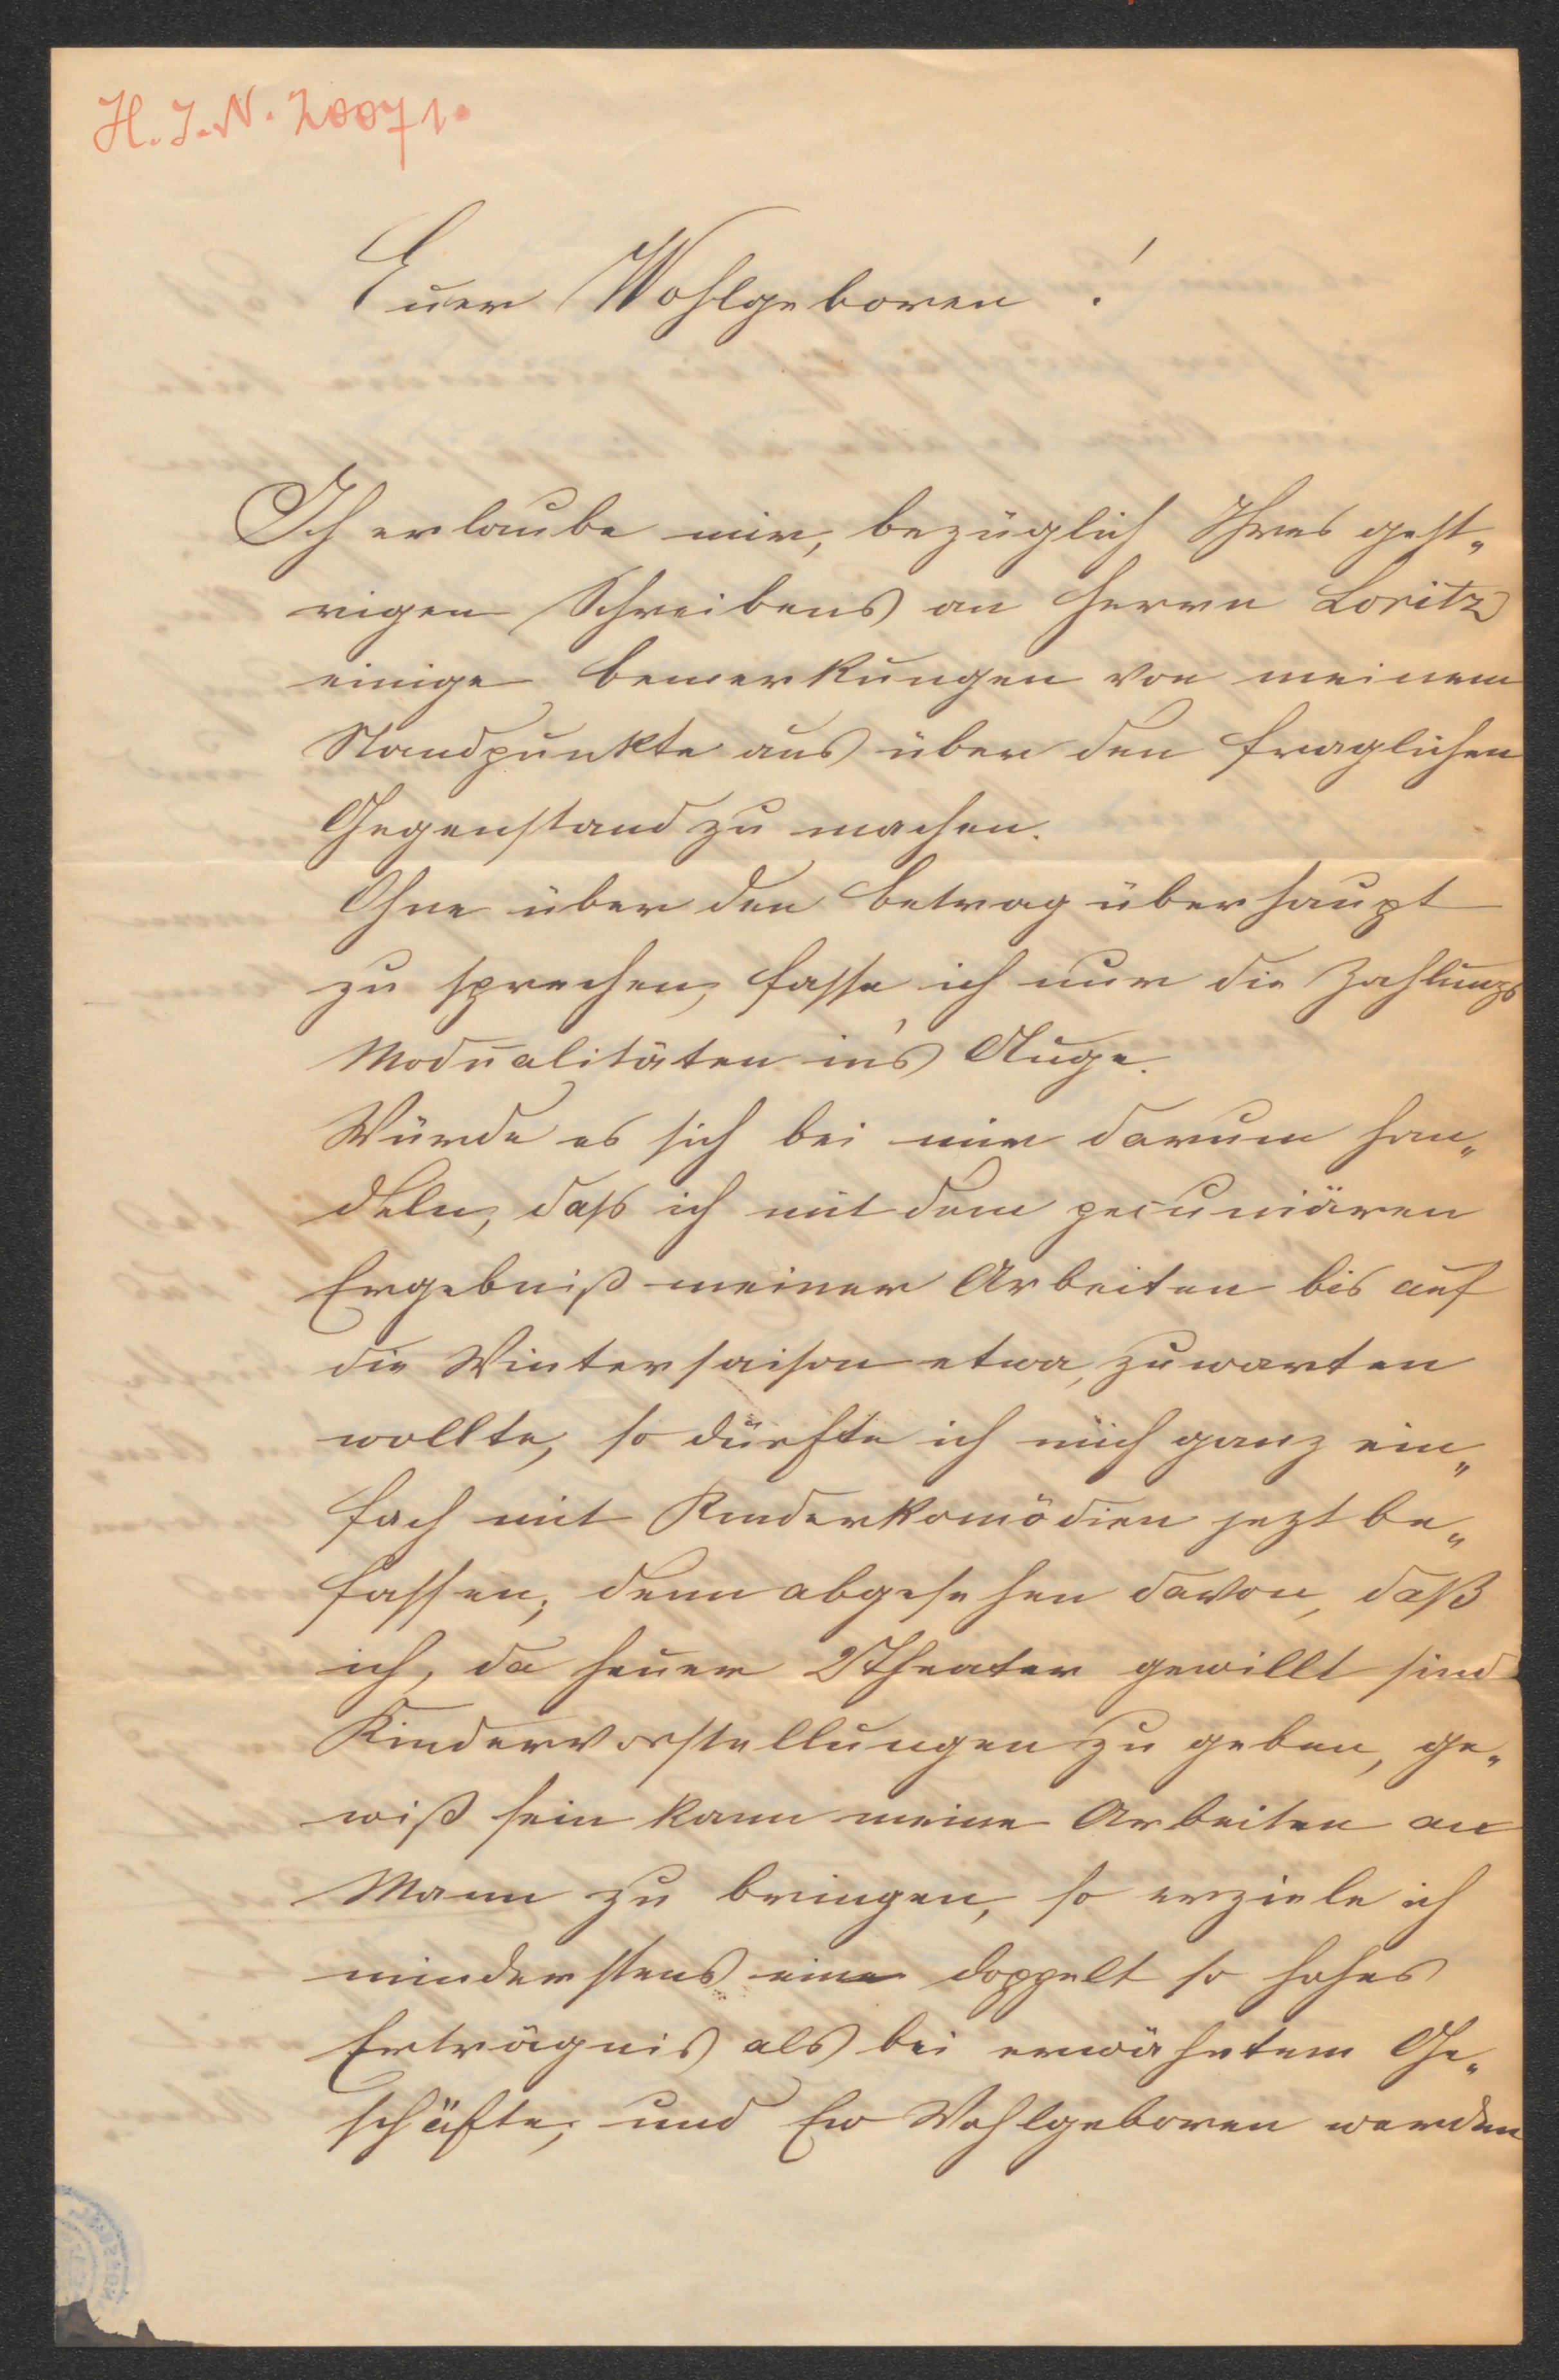 H. I. N. 20071.
Euer Wohlgeboren!
Ich erlaube mir, bezüglich Ihres gest„
rigen Schreibens an Herrn Loritz
einige Bemerkungen von meinem
Standpunkte aus über den fraglichen
Gegenstand zu machen.
Ohne über den Betrag überhaupt
zu sprechen, fasse ich nur die Zahlungs
Modualitäten in's Auge.
Würde es sich bei mir darum han„
deln, dass ich mit dem pecuniären
Ergebniß meiner Arbeiten bis auf
die Wintersaison etwa, zuwarten
wollte, so dürfte ich mich ganz ein„
fach mit Kinderkomödien jezt be„
fassen; denn abgesehen davon, daß
ich, da heuer 2 Theater gewillt sind
Kindervorstellungen zu geben, ge„
wiß sein kann meine Arbeiten an
Mann zu bringen, so erziele ich
minderstens eine doppelt so hohes
Erträgnis als bei erwähntem Ge„
schäfte; und Ew Wohlgeboren werden